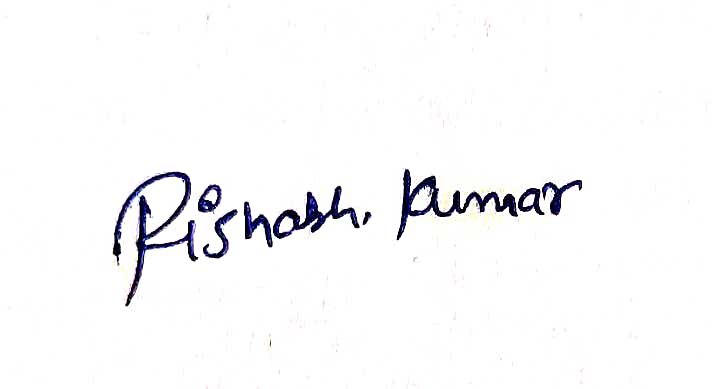 Rishabh. Kumar